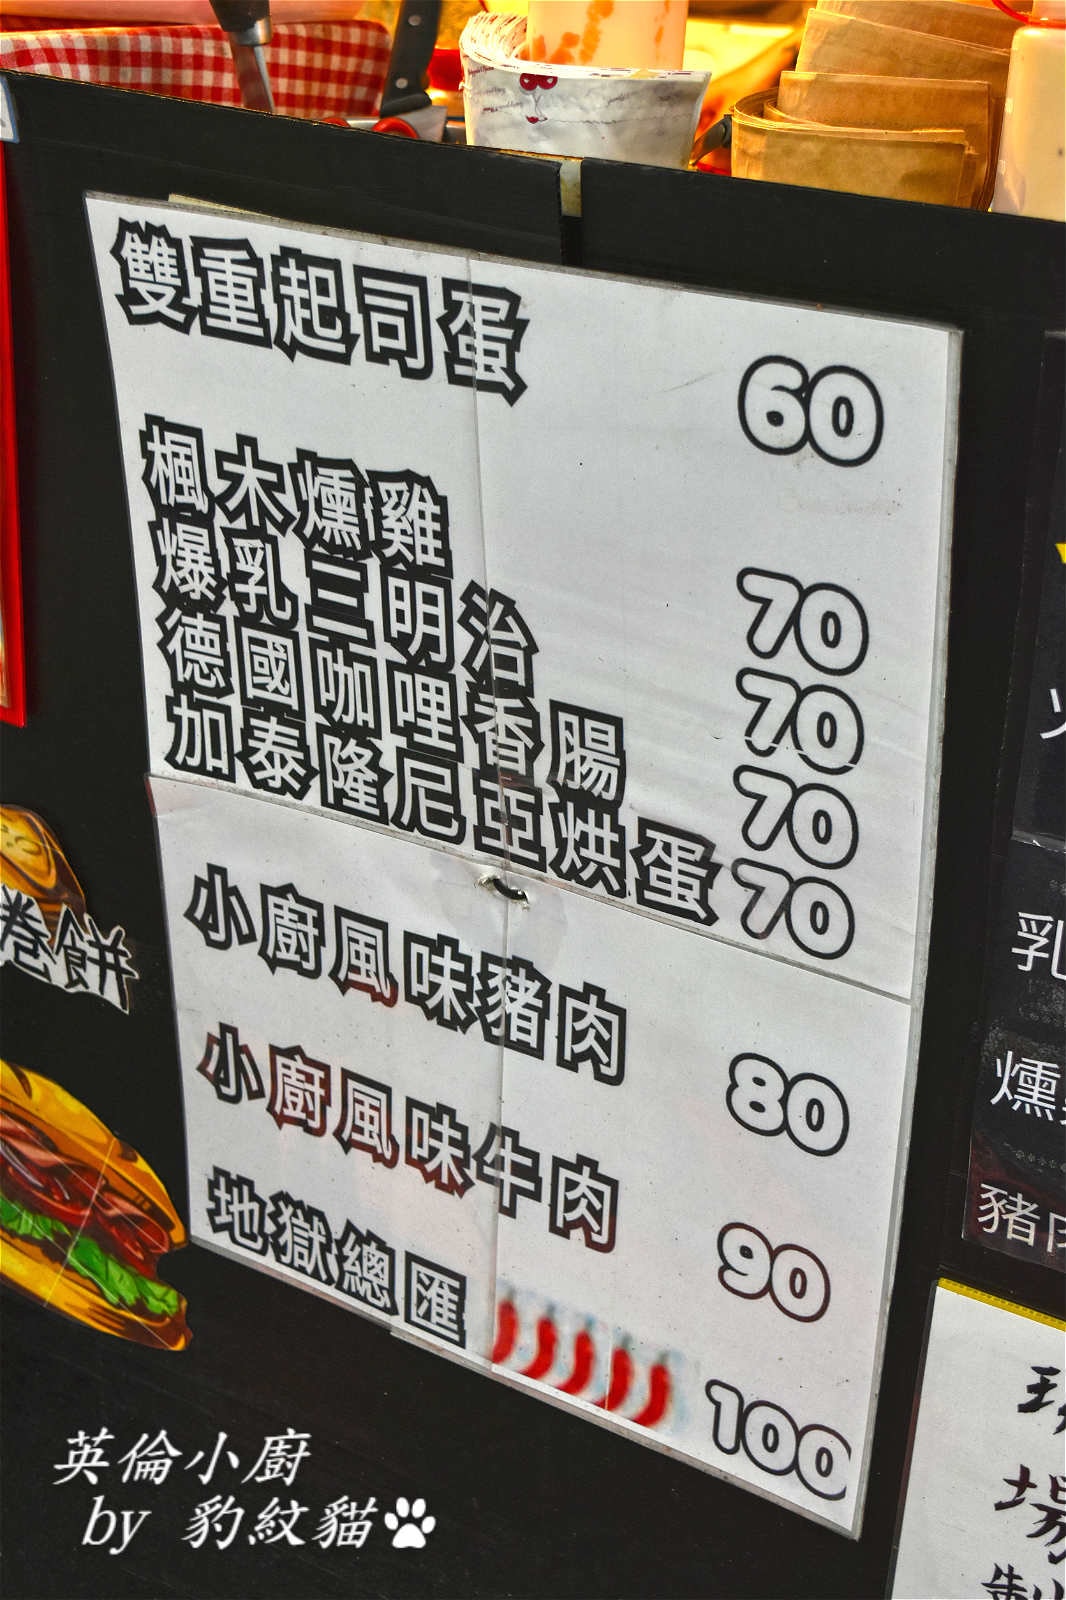 雙重起司蛋 60
楓木燻雞 70
爆乳三明治 70
德國咖哩香腸 70
加泰隆尼亞烘蛋 70
小廚風味豬肉 80
小廚風味牛肉 90
地獄總匯 100
卷餅
乳
燻
豬肉
場
製
英倫小廚
by 豹紋貓